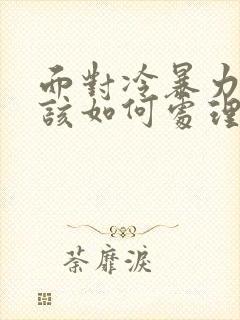 而對冷暴力
該如何處理
荼靡淚